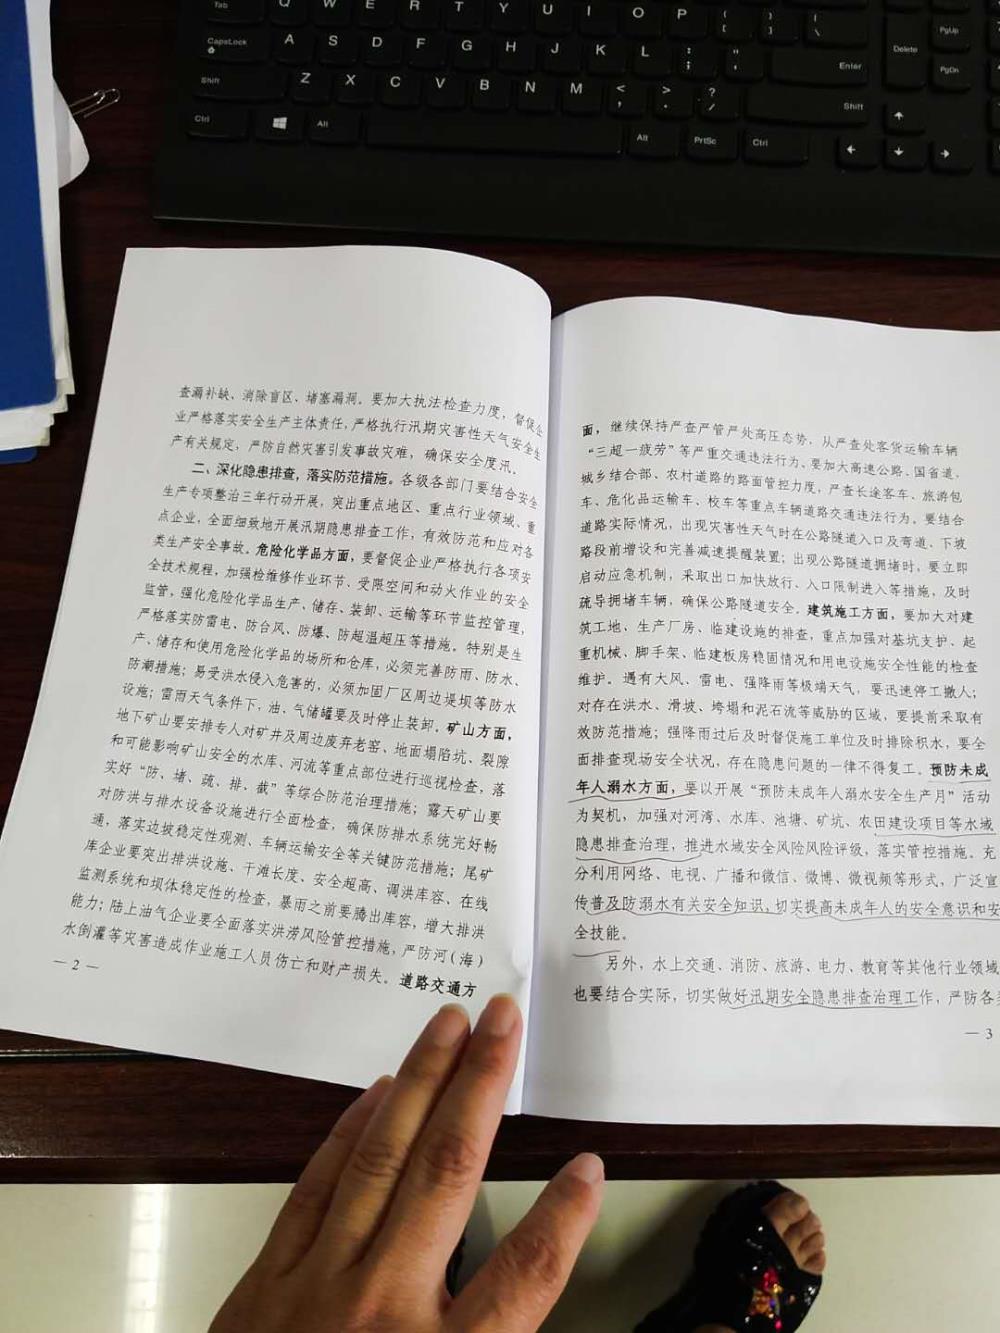 Tab
Q W E R T Y U I O P { [ } ] | \
Delete
PgUp
CapsLock A S D F G H J K L : ; " '
Enter
PgDn
Shift Z X C V B N M < , > . ? /
Shift
Ctrl
Alt
Alt
PrtSc
Ctrl
查漏补缺、消除盲区、堵塞漏洞。要加大执法检查力度，督促企
业严格落实安全生产主体责任，严格执行汛期灾害性天气安全生
产有关规定，严防自然灾害引发事故灾难，确保安全度汛。
二、深化隐患排查，落实防范措施。各级各部门要结合安全
生产专项整治三年行动开展，突出重点地区、重点行业领域、重
点企业，全面细致地开展汛期隐患排查工作，有效防范和应对各
类生产安全事故。危险化学品方面，要督促企业严格执行各项安
全技术规程，加强检维修作业环节、受限空间和动火作业的安全
监管，强化危险化学品生产、储存、装卸、运输等环节监控管理，
严格落实防雷电、防台风、防爆、防超温超压等措施。特别是生
产、储存和使用危险化学品的场所和仓库，必须完善防雨、防水、
防潮措施；易受洪水侵入危害的，必须加固厂区周边堤坝等防水
设施；雷雨天气条件下，油、气储罐要及时停止装卸。矿山方面，
地下矿山要安排专人对矿井及周边废弃老窑、地面塌陷坑、裂隙
和可能影响矿山安全的水库、河流等重点部位进行巡视检查，落
实好“防、堵、疏、排、截”等综合防范治理措施；露天矿山要
对防洪与排水设备设施进行全面检查，确保防排水系统完好畅
通，落实边坡稳定性观测、车辆运输安全等关键防范措施；尾矿
库企业要突出排洪设施、干滩长度、安全超高、调洪库容、在线
监测系统和坝体稳定性的检查，暴雨之前要腾出库容，增大排洪
能力；陆上油气企业要全面落实洪涝风险管控措施，严防河(海)
水倒灌等灾害造成作业施工人员伤亡和财产损失。道路交通方
— 2 —
面，继续保持严查严管严处高压态势，从严查处客货运输车辆
“三超一疲劳”等严重交通违法行为。要加大高速公路、国省道，
城乡结合部、农村道路的路面管控力度，严查长途客车、旅游包
车、危化品运输车、校车等重点车辆道路交通违法行为。要结合
道路实际情况，出现灾害性天气时在公路隧道入口及弯道、下坡
路段前增设和完善减速提醒装置；出现公路隧道拥堵时，要立即
启动应急机制，采取出口加快放行、入口限制进入等措施，及时
疏导拥堵车辆，确保公路隧道安全。建筑施工方面，要加大对建
筑工地、生产厂房、临建设施的排查，重点加强对基坑支护、起
重机械、脚手架、临建板房稳固情况和用电设施安全性能的检查
维护。遇有大风、雷电、强降雨等极端天气，要迅速停工撤人；
对存在洪水、滑坡、垮塌和泥石流等威胁的区域，要提前采取有
效防范措施；强降雨过后及时督促施工单位及时排除积水，要全
面排查现场安全状况，存在隐患问题的一律不得复工。预防未成
年人溺水方面，要以开展“预防未成年人溺水安全生产月”活动
为契机，加强对河湾、水库、池塘、矿坑、农田建设项目等水域
隐患排查治理，推进水域安全风险风险评级，落实管控措施。充
分利用网络、电视、广播和微信、微博、微视频等形式，广泛宣
传普及防溺水有关安全知识，切实提高未成年人的安全意识和安
全技能。
另外，水上交通、消防、旅游、电力、教育等其他行业领域
也要结合实际，切实做好汛期安全隐患排查治理工作，严防各
— 3